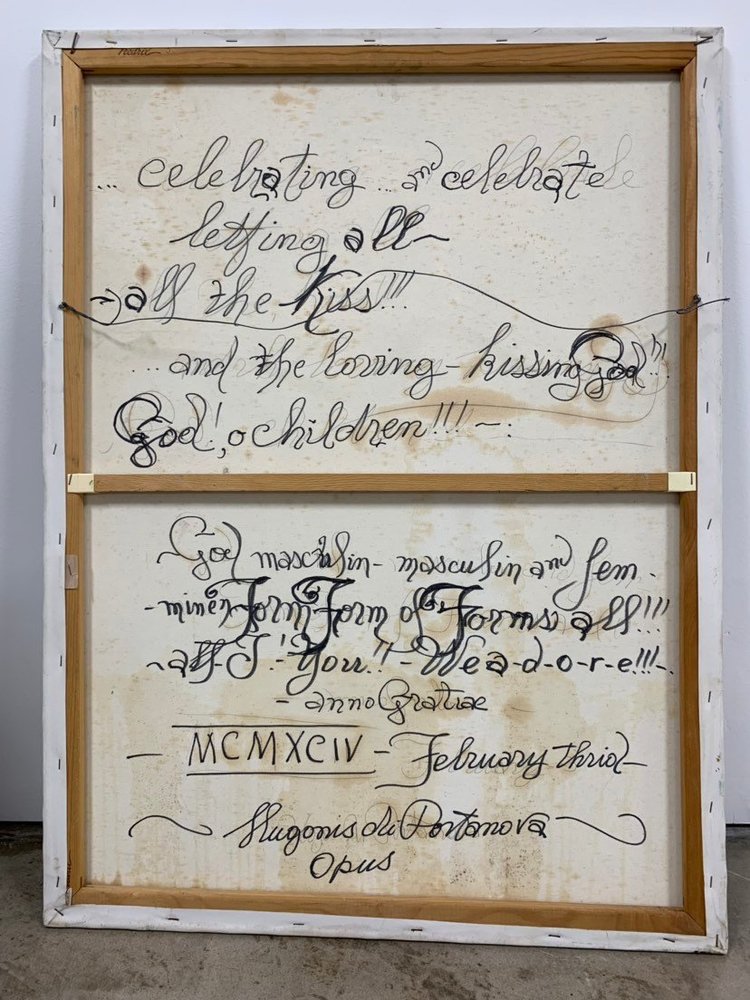 ... celebrating ... and celebrate
letting all ~
~ all the Kiss!!!
... and the loving - kissing God!!!
God!, o children!!! ~ :
~ God masculin - masculin and fem -
- minen Form Form of Forms all!!!
~ all I! - You!! - We a-d-o-r-e!!! -
- anno Gratiae
— MCMXCIV - February thrid —
~ Hugonis di Portanova ~
Opus